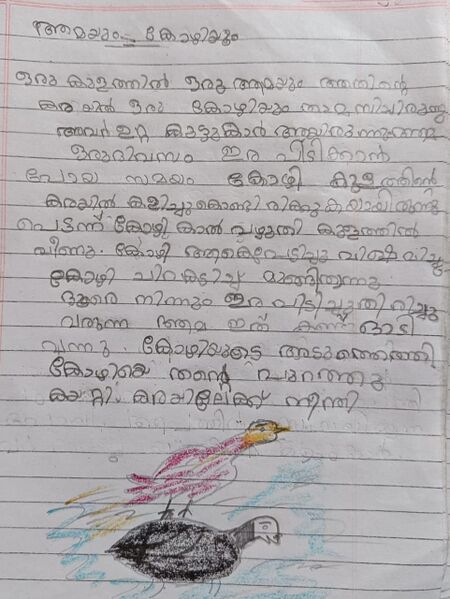 ആമയും കോഴിയും
ഒരു കുളത്തിൽ ഒരു ആമയും അതിന്റെ
കരയിൽ ഒരു കോഴിയും താമസിച്ചിരുന്നു
അവർ ഉറ്റ കൂട്ടുകാർ ആയിരുന്നു
ഒരുദിവസം ഇര പിടിക്കാൻ
പോയ സമയം കോഴി കുളത്തിന്റെ
കരയിൽ കളിച്ചുകൊണ്ടിരിക്കുകയായിരുന്നു
പെട്ടന്ന് കോഴി കാൽ വഴുതി കുളത്തിൽ
വീണു. കോഴി ആകെപേടിച്ചു
കോഴി ചിറകടിച്ച് മുങ്ങിത്താന്നു
ദൂരെ നിന്നും ഇര പിടിച്ചു
വരുന്ന ആമ ഇത് കണ്ട് ഓടി
വന്നു. കോഴിയുടെ അടുത്തെത്തി
കോഴിയെ തന്റെ പുറത്തു
കയറ്റി കരയിലേക്ക് നീന്തി